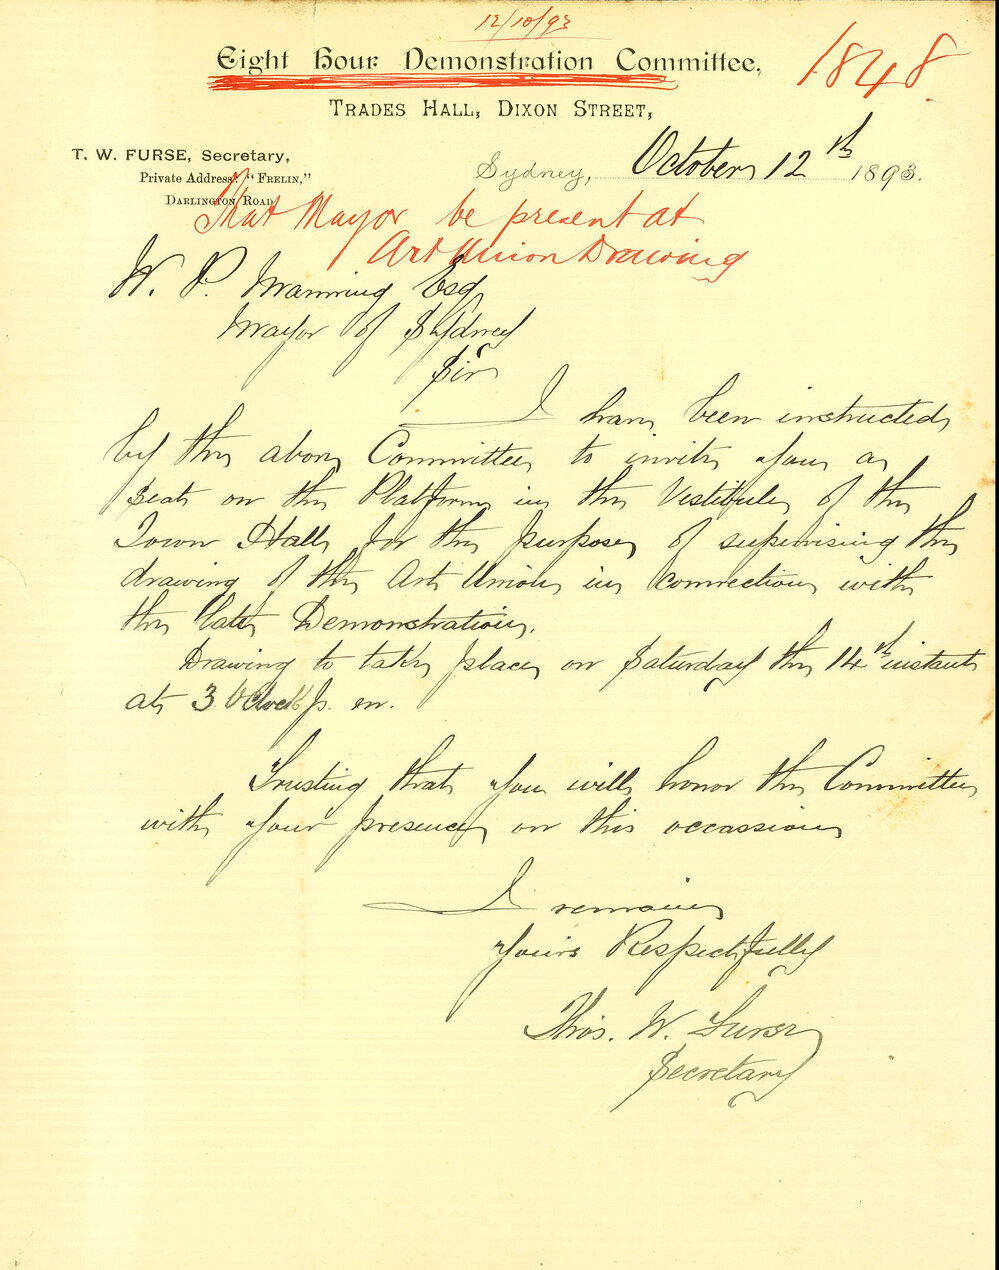 12/10/93
Eight Hour Demonstration Committee,
1848.
Trades Hall, Dixon Street,
T. W. FURSE, Secretary,
Private Address: "Frelin,"
Darlington Road
Sydney, October 12th 1893.
That Mayor be present at
Art Union Drawing
W. P. Manning Esq
Mayor of Sydney
Sir
I have been instructed
by the above Committee to invite you a
seat on the Platform in the Vestibule of the
Town Hall for the purpose of supervising the
drawing of the Art Union in connection with
the late Demonstration.
Drawing to take place on Saturday the 14th instant
at 3 O'Clock p. m.
Trusting that you will honor the Committee
with your presence on this occassion
I remain
Yours Respectfully
Thos. W. Furse
Secretary